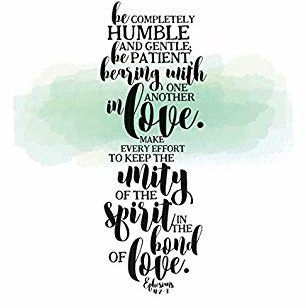 be COMPLETELY
HUMBLE
AND GENTLE;
be PATIENT,
bearing with
in ONE ANOTHER
love.
MAKE
EVERY EFFORT
TO KEEP THE
unity
OF THE
spirit IN THE
bond
OF love.
Ephesians
4:2-3